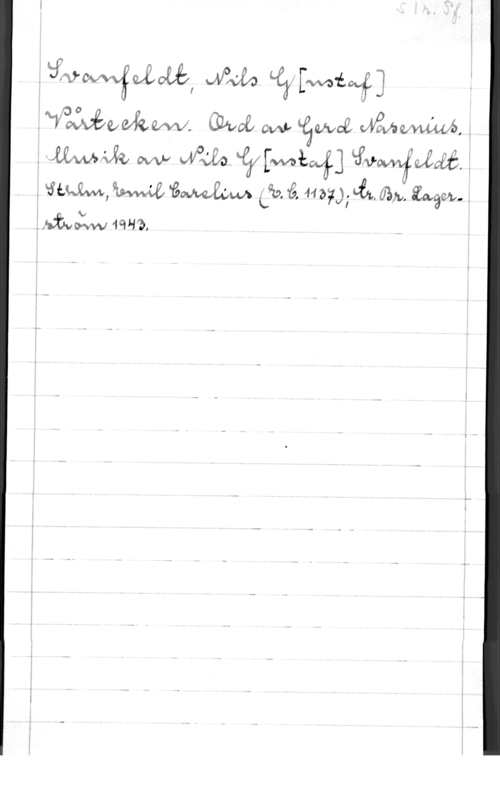 S 1 n. Sf.
Svanfeldt, Nils G[ustaf]
Vårtecken. Ord av Gerd Nasenius.
Musik av Nils G[ustaf] Svanfeldt.
Sthlm, Emil Carelius (E. C. 1137); tr. Br. Lager-
ström 1943.